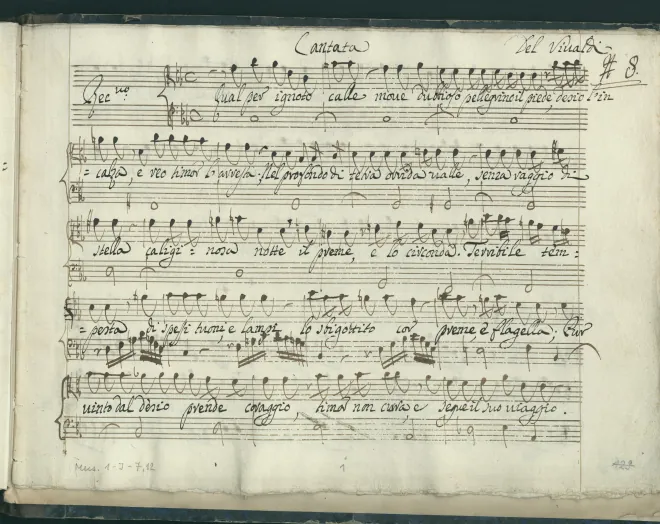 Cantata Del Vivaldi
# 8.
Rec.vo Qual per ignoto calle move dubbioso pellegrino il piede, desio l'in
= calza, e reo timor l'arresta; Nel profondo di selva orrida valle, senza raggio di
stella caligi = nosa notte il preme, e lo circonda. Terribile tem =
= pesta di spessi tuoni, e lampi lo sbigottito cor preme, e flagella; Pur
vinto dal desio prende coraggio, timor non cura, e segue il suo viaggio.
Mus. 1-J-7,12 1